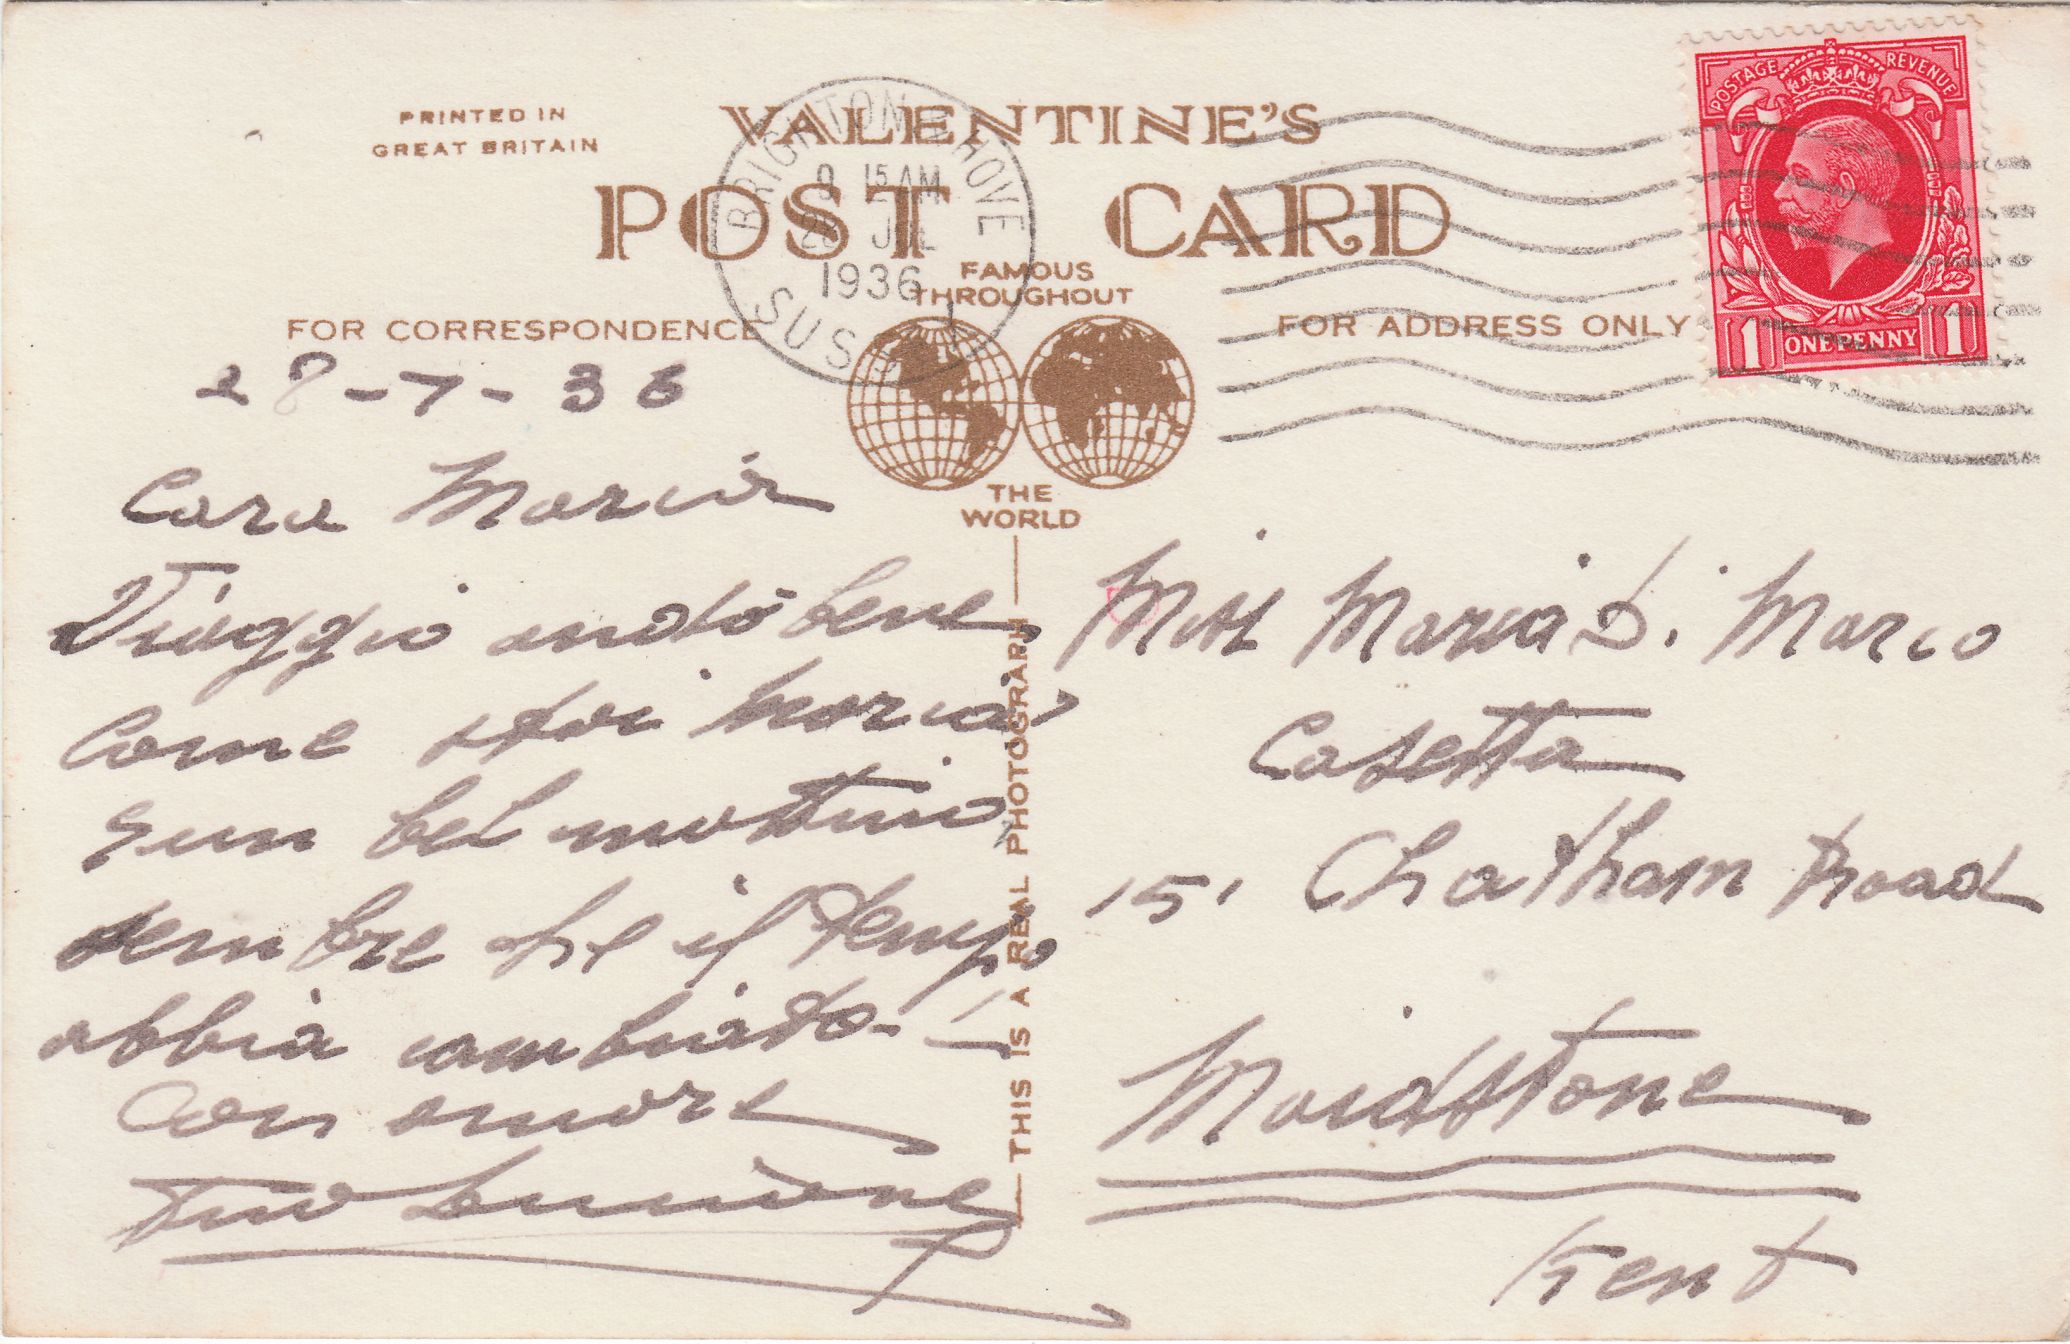 PRINTED IN
GREAT BRITAIN
VALENTINE'S
POST CARD
FAMOUS
THROUGHOUT
THE
WORLD
FOR CORRESPONDENCE
FOR ADDRESS ONLY
BRIGHTON & HOVE
9 15 AM
28 JUL
1936
SUSSEX
POSTAGE REVENUE
1 ONE PENNY 1
28-7-36
Cara Maria
Viaggio andò bene,
Come stai Maria?
E un bel mattino,
sembre che il tempo
abbia cambiato-!
Con amore
THIS IS A REAL PHOTOGRAPH
Miss Maria D. Marco
Casetta
151 Chatham Road
Maidstone
Kent